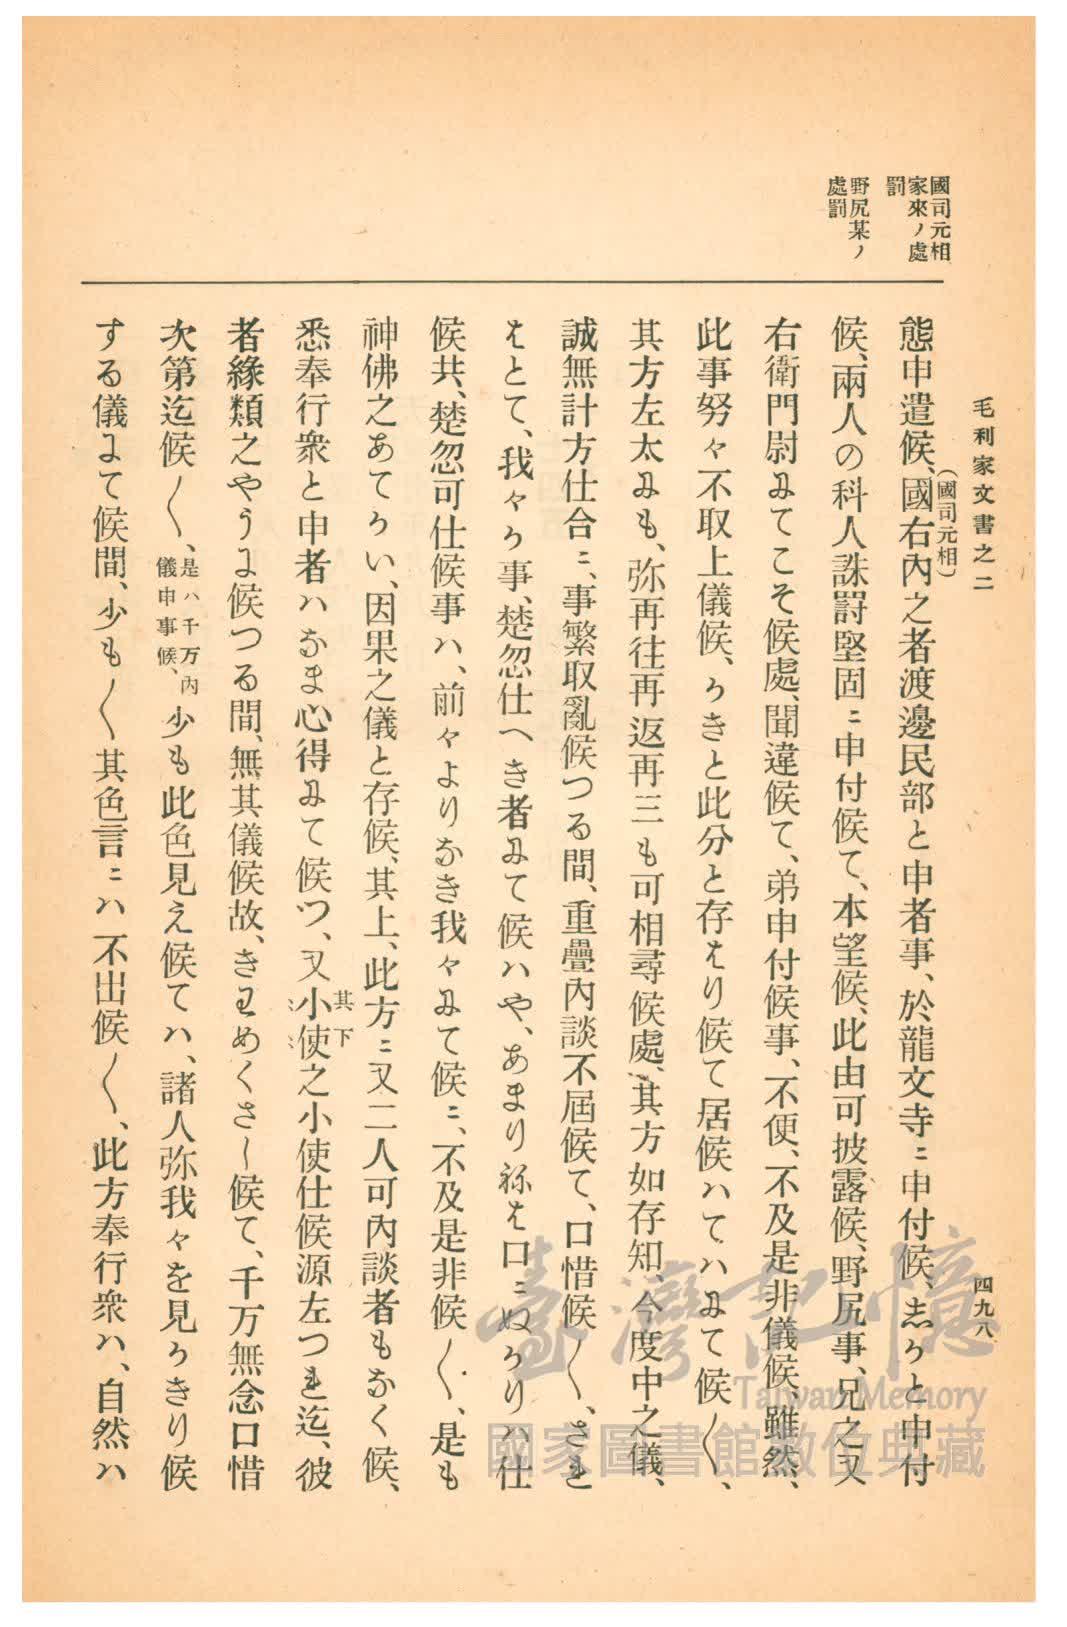 毛利家文書之二
四九八
國司元相
家來ノ處
罰
野尻某ノ
處罰
(國司元相)
態申遣候、國右內之者渡邊民部と申者事、於龍文寺ニ申付候、志かと申付
候、兩人の科人誅罸堅固ニ申付候て、本望候、此由可披露候、野尻事、兄之又
右衛門尉みてこそ候處、聞違候て、弟申付候事、不便、不及是非儀候、雖然、
此事努々不取上儀候、かきと此分と存はり候て居候ハてハみて候〳〵、
其方左太みも、弥再往再返再三も可相尋候處、其方如存知、今度中之儀、
誠無計方仕合ニ、事繁取亂候つる間、重疊內談不屆候て、口惜候〳〵、され
はとて、我々か事、楚忽仕へき者みて候ハや、あまり祢は口ニぬかりハ仕
候共、楚忽可仕候事ハ、前々よりなき我々みて候ニ、不及是非候〳〵、是も
神佛之あてかい、因果之儀と存候、其上、此方ニ又二人可內談者もなく候、
悉奉行衆と申者ハなま心得みて候つ、又小使之小使仕候源左つれ迄、彼
其下
者緣類之やうよ候つる間、無其儀候故、きわめくさ〳〵候て、千万無念口惜
次第迄候〳〵、是ハ千万內儀申事候、少も此色見え候てハ、諸人弥我々を見かきり候
する儀よて候間、少も〳〵其色言ニハ不出候〳〵、此方奉行衆ハ、自然ハ
臺灣記憶
Taiwan Memory
國家圖書館數位典藏